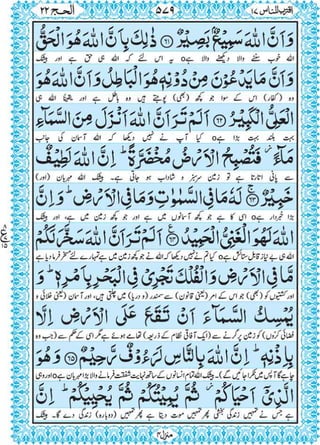 اقترب للناس ١٧ ٥٧٩ الحج ٢٢
وَاَنَّ اللهَ سَمِيْعٌۢ بَصِيْرٌ ﴿٦١﴾ ذٰلِكَ بِاَنَّ اللهَ هُوَ الْحَقُّ
اللہ خوب سننے والا دیکھنے والا ہےo یہ اس لئے کہ اللہ ہی حق ہے اور بیشک
وَاَنَّ مَا يَدْعُوْنَ مِنْ دُوْنِهٖ هُوَ الْبَاطِلُ وَاَنَّ اللهَ هُوَ
وہ (کفار) اس کے سوا جو کچھ (بھی) پوجتے ہیں وہ باطل ہے اور یقیناً اللہ ہی
الْعَلِيُّ الْكَبِيْرُ ﴿٦٢﴾ اَلَمْ تَرَ اَنَّ اللهَ اَنْزَلَ مِنَ السَّمَآءِ
بہت بلند بہت بڑا ہےo کیا آپ نے نہیں دیکھا کہ اللہ آسمان کی جانب
مَآءً ۫ فَتُصْبِحُ الْاَرْضُ مُخْضَرَّةً ؕ اِنَّ اللهَ لَطِيْفٌ
سے پانی اتارتا ہے تو زمین سرسبز و شاداب ہو جاتی ہے۔ بیشک اللہ مہربان (اور)
خَبِيْرٌ ﴿٦٣﴾ لَهٗ مَا فِي السَّمٰوٰتِ وَمَا فِي الْاَرْضِ ؕ وَاِنَّ
بڑا خبردار ہےo اسی کا ہے جو کچھ آسمانوں میں ہے اور جو کچھ زمین میں ہے، اور بیشک
اللهَ لَهُوَ الْغَنِيُّ الْحَمِيْدُ ﴿٦٤﴾ اَلَمْ تَرَ اَنَّ اللهَ سَخَّرَ لَكُمْ
اللہ ہی بے نیاز قابلِ ستائش ہےo کیا تم نے نہیں دیکھا کہ اللہ نے جو کچھ زمین میں ہے تمہارے لئے مسخر فرما دیا ہے
مَّا فِي الْاَرْضِ وَالْفُلْكَ تَجْرِيْ فِي الْبَحْرِ بِاَمْرِهٖ ؕ وَ
اور کشتیوں کو (بھی) جو اس کے امر (یعنی قانون) سے سمندر (و دریا) میں چلتی ہیں، اور آسمان (یعنی خلائی و
يُمْسِكُ السَّمَآءَ اَنْ تَقَعَ عَلَى الْاَرْضِ اِلَّا
فضائی کروں) کو زمین پر گرنے سے (ایک آفاقی نظام کے ذریعہ) تھامے ہوئے ہے مگر اسی کے حکم سے (جب وہ
بِاِذْنِهٖ ؕ اِنَّ اللهَ بِالنَّاسِ لَرَءُوْفٌ رَّحِيْمٌ ﴿٦٥﴾ وَهُوَ
چاہے گا آپس میں ٹکرا جائیں گے)۔ بیشک اللہ تمام انسانوں کے ساتھ نہایت شفقت فرمانے والا بڑا مہربان ہےo اور وہی
الَّذِيْۤ اَحْيَاكُمْ ۫ ثُمَّ يُمِيْتُكُمْ ثُمَّ يُحْيِيْكُمْ ؕ اِنَّ
ہے جس نے تمہیں زندگی بخشی پھر تمہیں موت دیتا ہے پھر تمہیں (دوبارہ) زندگی دے گا۔ بیشک
منزل ٤